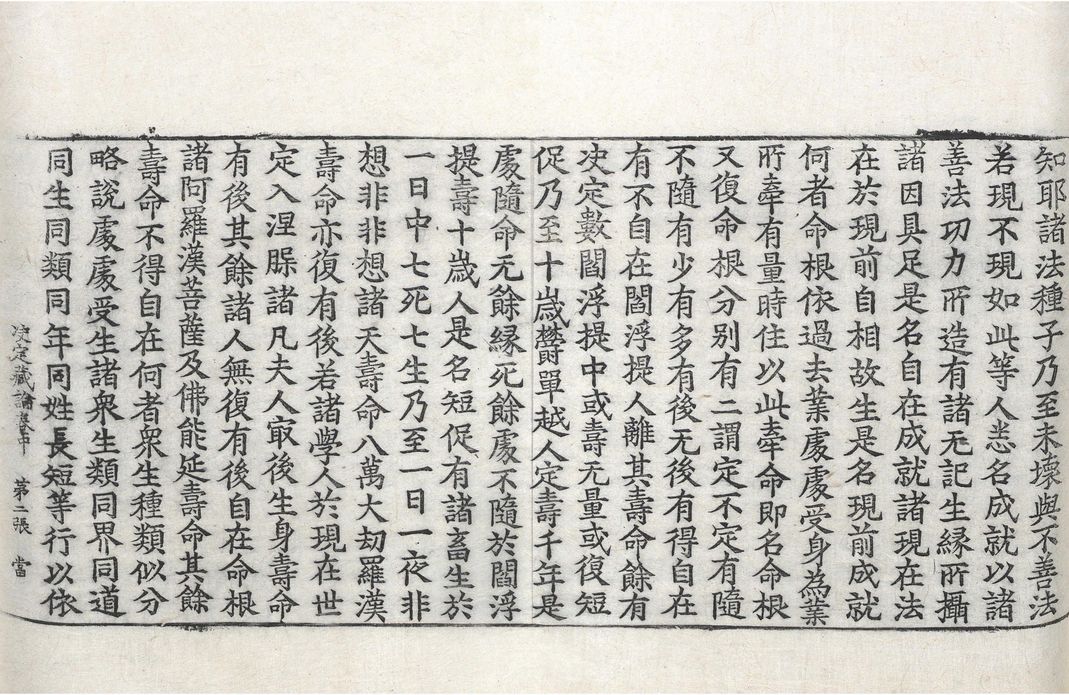 知耶諸法種子乃至未壞與不善法
若現不現如此等人悉名成就以諸
善法功力所造有諸无記生縁所攝
諸因具足是名自在成就諸現在法
在於現前自相故生是名現前成就
何者命根依過去業處處受身為業
所牽有量時住以此牽命即名命根
又復命根分别有二謂定不定有隨
不隨有少有多有後无後有得自在
有不自在閻浮提人離其壽命餘有
决定數閻浮提中或壽无量或復短
促乃至十歲欝單越人定壽千年是
處隨命无餘縁死餘處不隨於閻浮
提壽十歲人是名短促有諸畜生於
一日中七死七生乃至一日一夜非
想非非想諸天壽命八萬大劫羅漢
壽命亦復有後若諸學人於現在世
定入涅槃諸凡夫人㝡後生身壽命
有後其餘諸人無復有後自在命根
諸阿羅漢菩薩及佛能延壽命其餘
壽命不得自在何者衆生種類似分
略說處處受生諸衆生類同界同道
同生同類同年同姓長短等行以依
决定藏論卷中　第二張　當